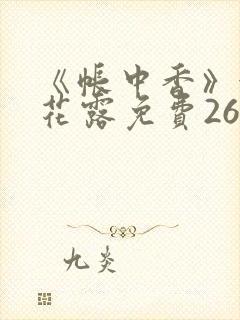 《帳中香》
花露免費26
九炎